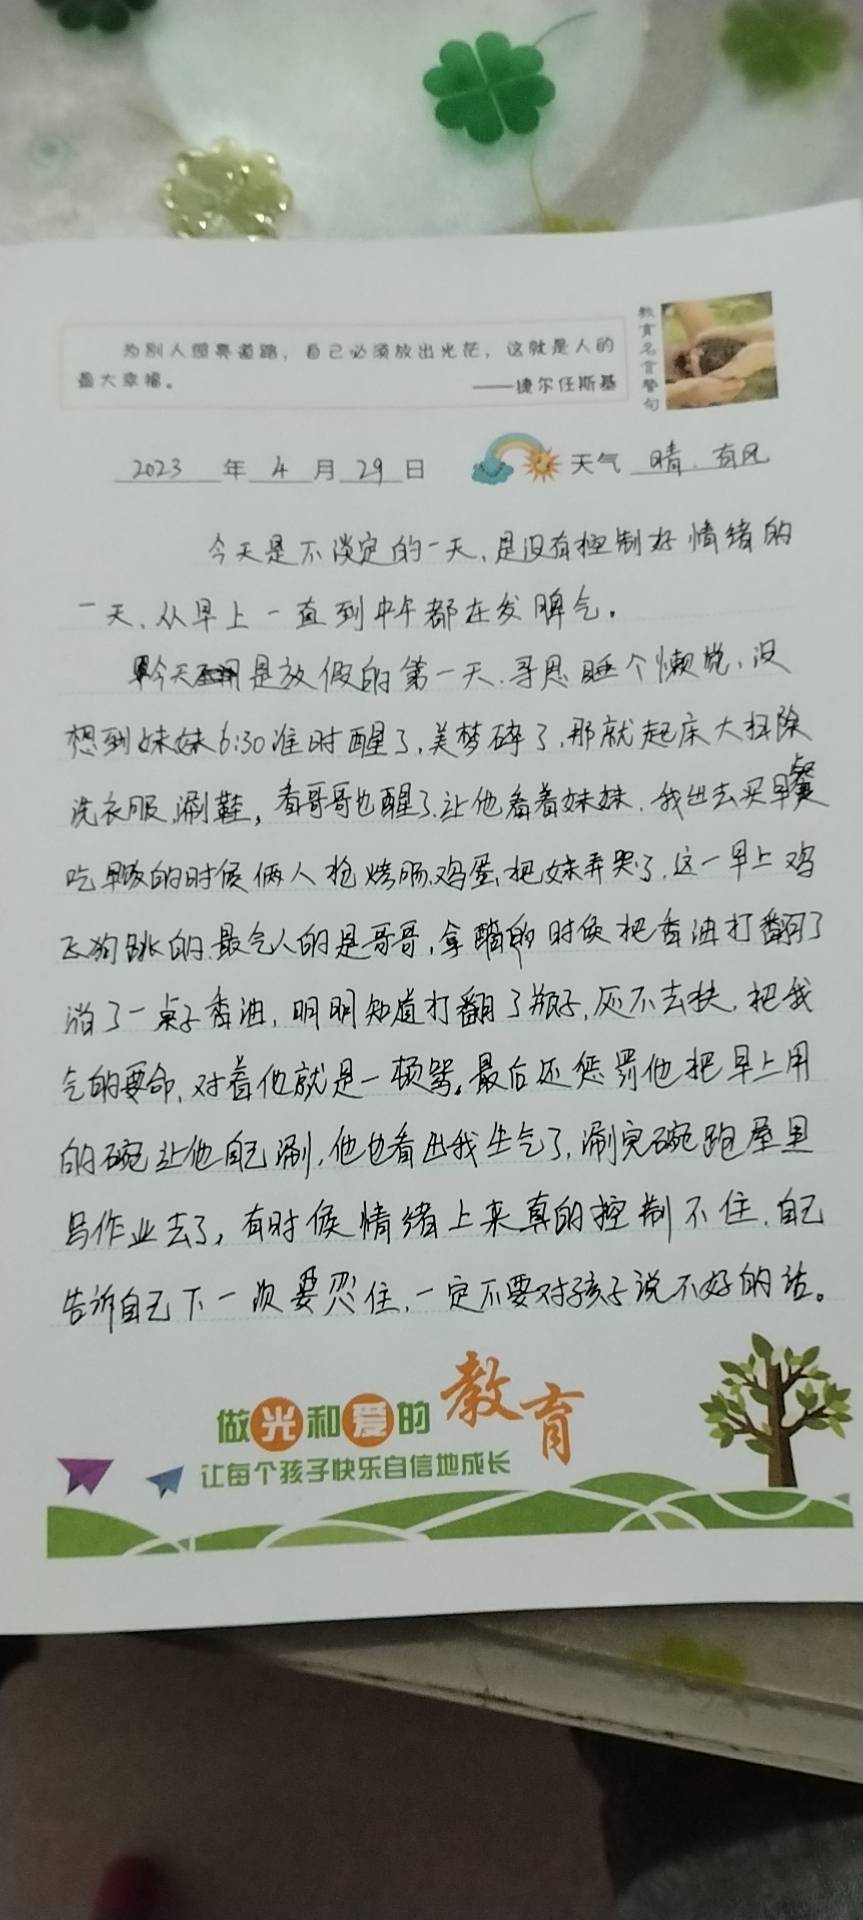 为别人照亮道路，自己必须放出光芒，这就是人的
最大幸福。
——捷尔任斯基
教育名言警句
2023年4月29日 天气 晴、有风
今天是不淡定的一天、是没有控制好情绪的
一天、从早上一直到中午都在发脾气。
今天是放假的第一天、寻思睡个懒觉、没
想到妹妹6:30准时醒了,美梦碎了,那就起床大扫除
洗衣服,涮鞋，看哥哥也醒了,让他看着妹妹.我出去买早餐
吃早饭的时候俩人抢烤肠,鸡蛋,把妹弄哭了,这一早上鸡
飞狗跳的.最气人的是哥哥,拿醋的时候把香油打翻了
淌了一桌子香油,明明知道打翻了瓶子,还不去扶.把我
气的要命,对着他就是一顿骂。最后还惩罚他把早上用
的碗让他自己涮,他也看出我生气了,涮完碗跑屋里
写作业去了,有时候情绪上来真的控制不住.自己
告诉自己下一次要忍住,一定不要对孩子说不好的话。
做光和爱的教育
让每个孩子快乐自信地成长